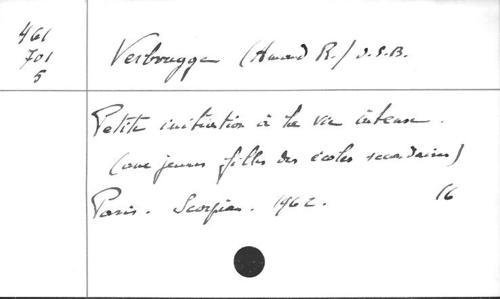 461
701
5
Verbrugge (Amand R.) O.S.B.
Petite initiation à la vie intense.
(aux jeunes filles des écoles secondaires)
Paris. Scorpion. 1962. 16